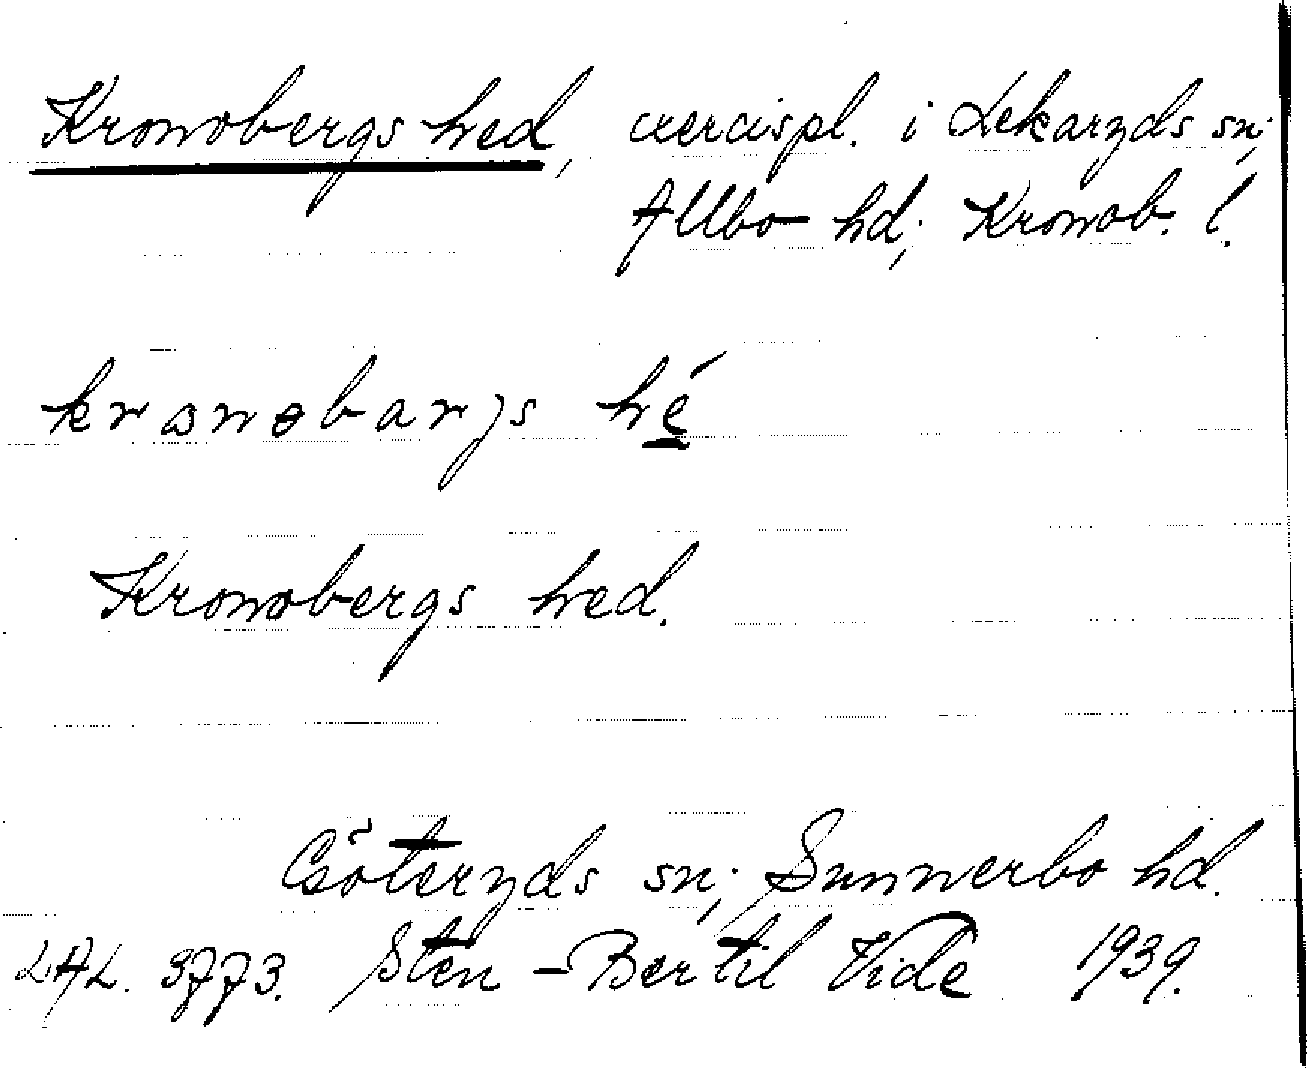 Kronobergs hed, exercispl. i Lekaryds sn;
Allbo hd; Kronob. l.
kronobargs hé
Kronobergs hed.
Göteryds sn; Sunnerbo hd.
LAL. 3773. Sten-Bertil Vide 1939.